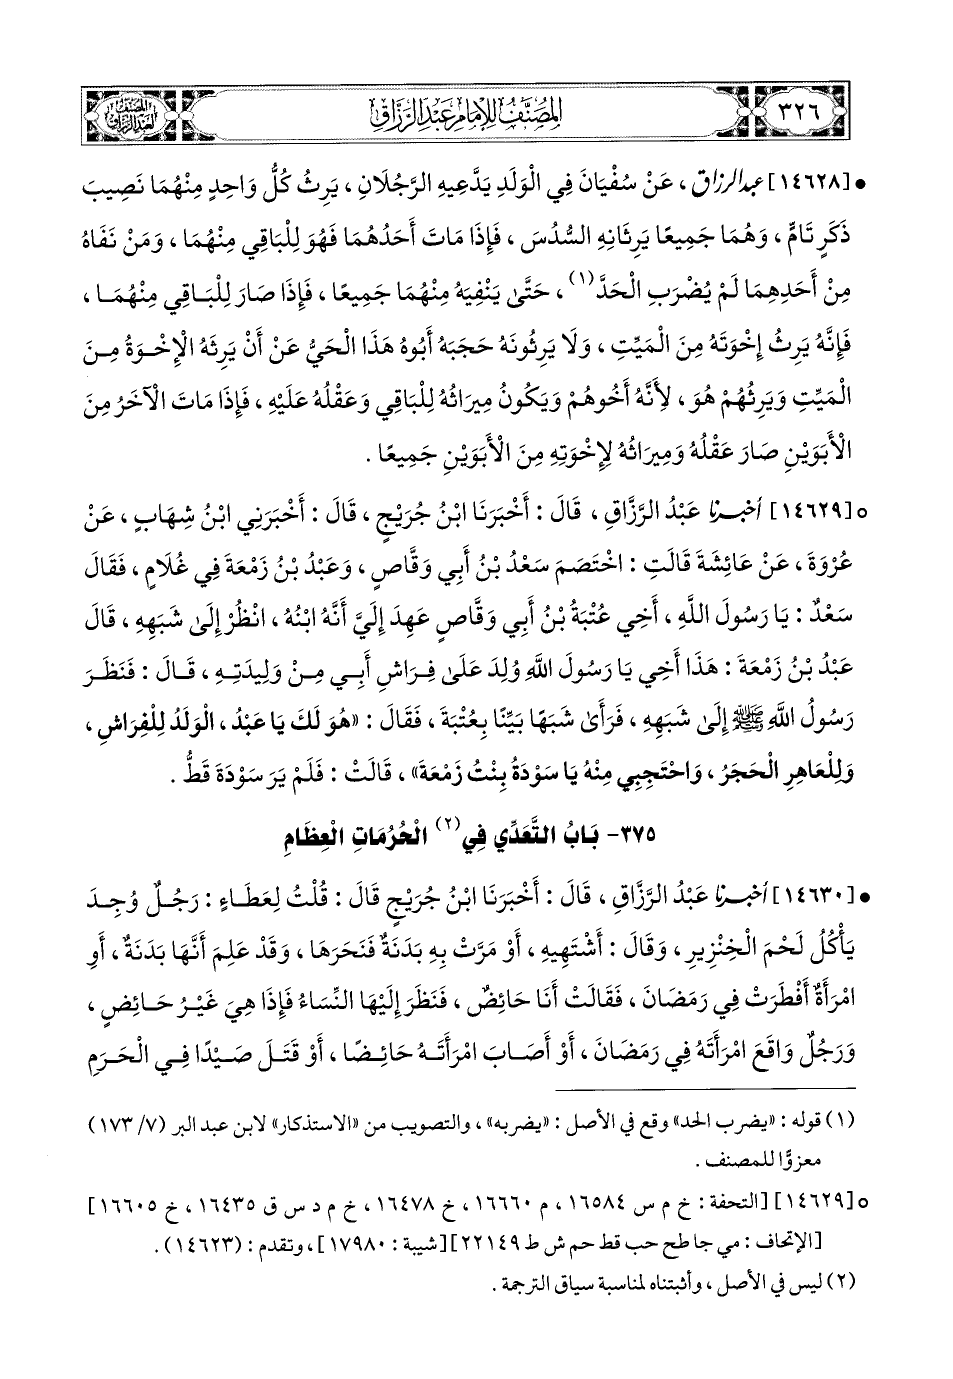 ٣٢٦
المُصَنَّفُ لِلإِمَامِ عَبْدِ الرَّزَّاقِ
المصنف لعبد الرزاق
• [١٤٦٢٨] عبد الرزاق ، عَنْ سُفْيَانَ فِي الْوَلَدِ يَدَّعِيهِ الرَّجُلَانِ ، يَرِثُ كُلُّ وَاحِدٍ مِنْهُمَا نَصِيبَ
ذَكَرٍ تَامٍّ ، وَهُمَا جَمِيعًا يَرِثَانِهِ السُّدُسَ ، فَإِذَا مَاتَ أَحَدُهُمَا فَهُوَ لِلْبَاقِي مِنْهُمَا ، وَمَنْ نَفَاهُ
مِنْ أَحَدِهِمَا لَمْ يُضْرَبِ الْحَدَّ(١) ، حَتَّىٰ يَنْفِيَهُ مِنْهُمَا جَمِيعًا ، فَإِذَا صَارَ لِلْبَاقِي مِنْهُمَا ،
فَإِنَّهُ يَرِثُ إِخْوَتَهُ مِنَ الْمَيِّتِ ، وَلَا يَرِثُونَهُ حَجَبَهُ أَبُوهُ هَذَا الْحَيُّ عَنْ أَنْ يَرِثَهُ الْإِخْوَةُ مِنَ
الْمَيِّتِ وَيَرِثُهُمْ هُوَ ، لِأَنَّهُ أَخُوهُمْ وَيَكُونُ مِيرَاثُهُ لِلْبَاقِي وَعَقْلُهُ عَلَيْهِ ، فَإِذَا مَاتَ الْآخَرُ مِنَ
الْأَبَوَيْنِ صَارَ عَقْلُهُ وَمِيرَاثُهُ لِإِخْوَتِهِ مِنَ الْأَبَوَيْنِ جَمِيعًا .
○ [١٤٦٢٩] أخبرنا عَبْدُ الرَّزَّاقِ ، قَالَ : أَخْبَرَنَا ابْنُ جُرَيْجٍ ، قَالَ : أَخْبَرَنِي ابْنُ شِهَابٍ ، عَنْ
عُرْوَةَ ، عَنْ عَائِشَةَ قَالَتِ : اخْتَصَمَ سَعْدُ بْنُ أَبِي وَقَّاصٍ ، وَعَبْدُ بْنُ زَمْعَةَ فِي غُلَامٍ ، فَقَالَ
سَعْدٌ : يَا رَسُولَ اللَّهِ ، أَخِي عُتْبَةُ بْنُ أَبِي وَقَّاصٍ عَهِدَ إِلَيَّ أَنَّهُ ابْنُهُ ، انْظُرْ إِلَىٰ شَبَهِهِ ، قَالَ
عَبْدُ بْنُ زَمْعَةَ : هَذَا أَخِي يَا رَسُولَ اللَّهِ وُلِدَ عَلَىٰ فِرَاشِ أَبِي مِنْ وَلِيدَتِهِ ، قَالَ : فَنَظَرَ
رَسُولُ اللَّهِ ﷺ إِلَىٰ شَبَهِهِ ، فَرَأَىٰ شَبَهًا بَيِّنًا بِعُتْبَةَ ، فَقَالَ : «هُوَ لَكَ يَا عَبْدُ ، الْوَلَدُ لِلْفِرَاشِ ،
وَلِلْعَاهِرِ الْحَجَرُ ، وَاحْتَجِبِي مِنْهُ يَا سَوْدَةُ بِنْتُ زَمْعَةَ» ، قَالَتْ : فَلَمْ يَرَ سَوْدَةَ قَطُّ .
٣٧٥- بَابُ التَّعَدِّي فِي(٢) الْحُرُمَاتِ الْعِظَامِ
• [١٤٦٣٠] أخبرنا عَبْدُ الرَّزَّاقِ ، قَالَ : أَخْبَرَنَا ابْنُ جُرَيْجٍ قَالَ : قُلْتُ لِعَطَاءٍ : رَجُلٌ وُجِدَ
يَأْكُلُ لَحْمَ الْخِنْزِيرِ ، وَقَالَ : أَشْتَهِيهِ ، أَوْ مَرَّتْ بِهِ بَدَنَةٌ فَنَحَرَهَا ، وَقَدْ عَلِمَ أَنَّهَا بَدَنَةٌ ، أَوِ
امْرَأَةٌ أَفْطَرَتْ فِي رَمَضَانَ ، فَقَالَتْ أَنَا حَائِضٌ ، فَنَظَرَ إِلَيْهَا النِّسَاءُ فَإِذَا هِيَ غَيْرُ حَائِضٍ ،
وَرَجُلٌ وَاقَعَ امْرَأَتَهُ فِي رَمَضَانَ ، أَوْ أَصَابَ امْرَأَتَهُ حَائِضًا ، أَوْ قَتَلَ صَيْدًا فِي الْحَرَمِ
(١) قوله : «يضرب الحد» وقع في الأصل : «يضربه» ، والتصويب من «الاستذكار» لابن عبد البر (٧/ ١٧٣)
معزوًّا للمصنف .
○ [١٤٦٢٩] [التحفة : خ م س ١٦٥٨٤ ، م ١٦٦٦٠ ، خ ١٦٤٧٨ ، خ م د س ق ١٦٤٣٥ ، خ ١٦٦٠٥]
[الإتحاف : مي جا طح حب قط حم ش ط ٢٢١٤٩] [شيبة : ١٧٩٨٠] ، وتقدم : (١٤٦٢٣) .
(٢) ليس في الأصل ، وأثبتناه لمناسبة سياق الترجمة .